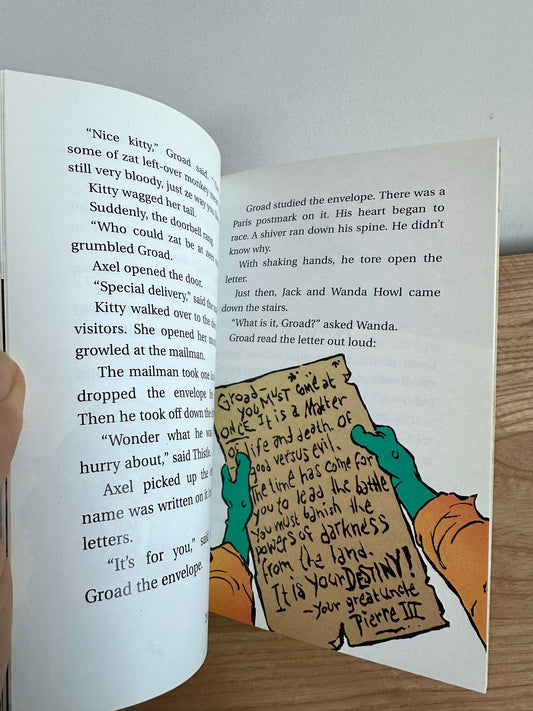 “Nice kitty,” Groad said.
some of zat left-over monkey
still very bloody, just ze way you
Kitty wagged her tail.
Suddenly, the doorbell rang.
“Who could zat be at
grumbled Groad.
Axel opened the door.
“Special delivery,” said the
Kitty walked over to the
visitors. She opened her
growled at the mailman.
The mailman took one
dropped the envelope
Then he took off down the
“Wonder what he was
hurry about,” said Thistle.
Axel picked up the
name was written on it
letters.
“It’s for you,”
Groad the envelope.
Groad studied the envelope. There was a
Paris postmark on it. His heart began to
race. A shiver ran down his spine. He didn’t
know why.
With shaking hands, he tore open the
letter.
Just then, Jack and Wanda Howl came
down the stairs.
“What is it, Groad?” asked Wanda.
Groad read the letter out loud:
Groad,
you MUST come at
ONCE. It is a Matter
of life and death. Of
good versus evil.
The time has come for
you to lead the battle
You must banish the
powers of darkness
from the land.
It is your DESTINY!
-your great uncle
Pierre III